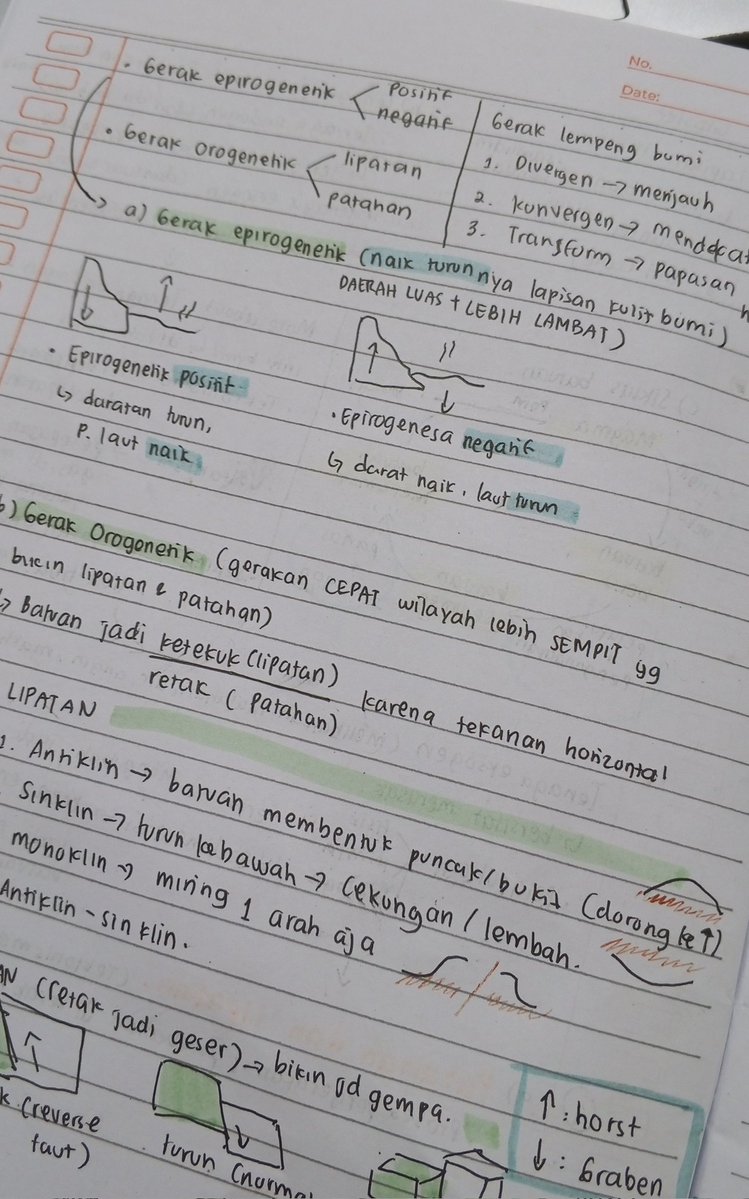 No.
Date:
• Gerak epirogenetik < Positif
negatif
• Gerak Orogenetik < lipatan
patahan
Gerak lempeng bumi
1. Divergen → menjauh
2. Konvergen → mendekat
3. Transform → papasan
a) Gerak epirogenetik (naik turunnya lapisan kulit bumi)
DAERAH LUAS + LEBIH LAMBAT)
• Epirogenetik positif
↳ daratan turun,
P. laut naik
• Epirogenesa negatif
↳ darat naik, laut turun
b) Gerak Orogonetik (gerakan CEPAT wilayah lebih SEMPIT yg
bikin lipatan & patahan)
↳ Batuan jadi ketekuk (lipatan)
retak (patahan) karena tekanan horizontal
LIPATAN
1. Antiklin → batuan membentuk puncak/bukit (dorong ke ↑)
Sinklin → turun kebawah → cekungan / lembah.
monoklin → miring 1 arah aja
Antiklin - sinklin.
(retak jadi geser) → bikin gempa.
(reverse
faut)
turun (norma
↑ : horst
↓ : Graben